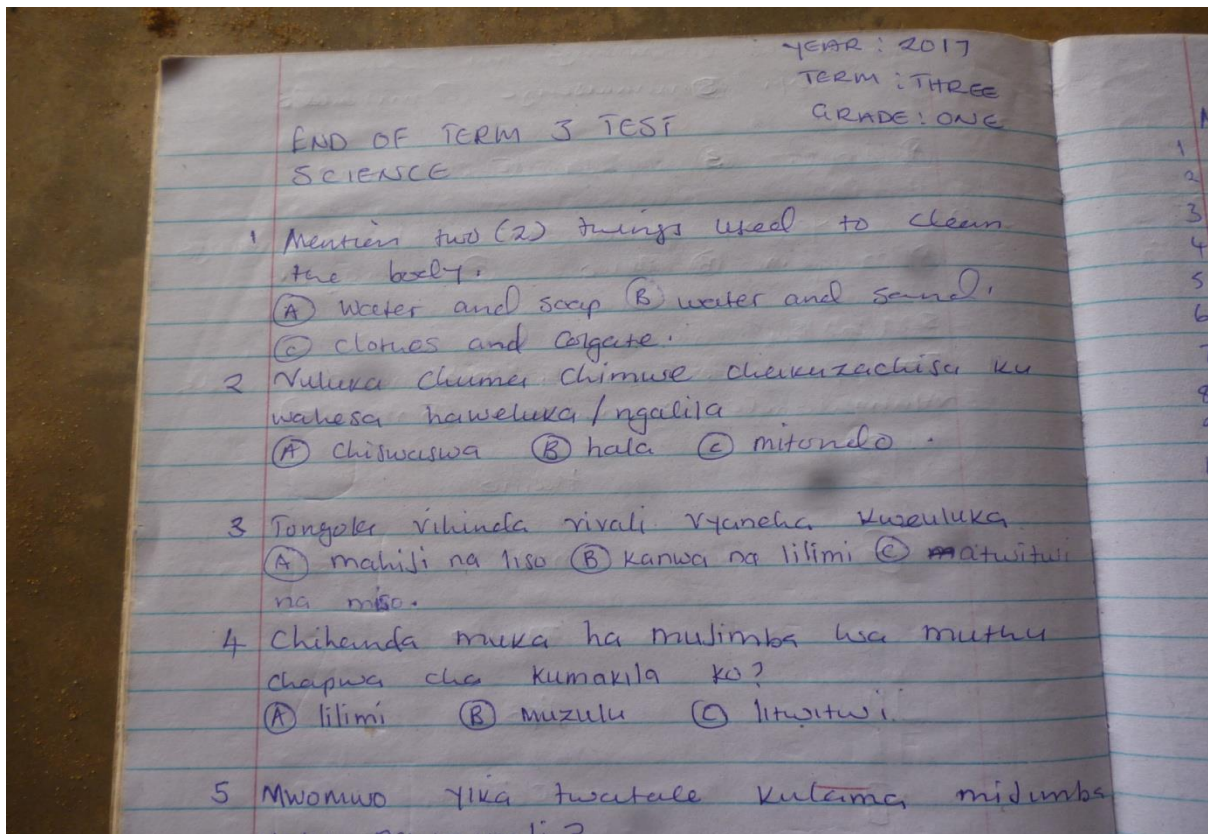 YEAR : 2017
TERM : THREE
GRADE : ONE
END OF TERM 3 TEST
SCIENCE
1 Mention two (2) things used to clean
the body.
(A) Water and soap (B) water and sand.
(C) clothes and Colgate.
2 Vuluka chuma chimwe chakuzachisa ku
wahesa haweluka / ngalila
(A) chiswaswa (B) hala (C) mitondo .
3 Tongola vihinda vivali vyaneha kweuluka
(A) mahiji na liso (B) kanwa na lilimi (C) matwitwi
na miso.
4 Chihanda muka ha mujimba wa muthu
chapwa cha kumakila ko?
(A) lilimi (B) muzulu (C) litwitwi.
5 Mwomwo yika twatale kulama mijimba
1
2
3
4
5
6